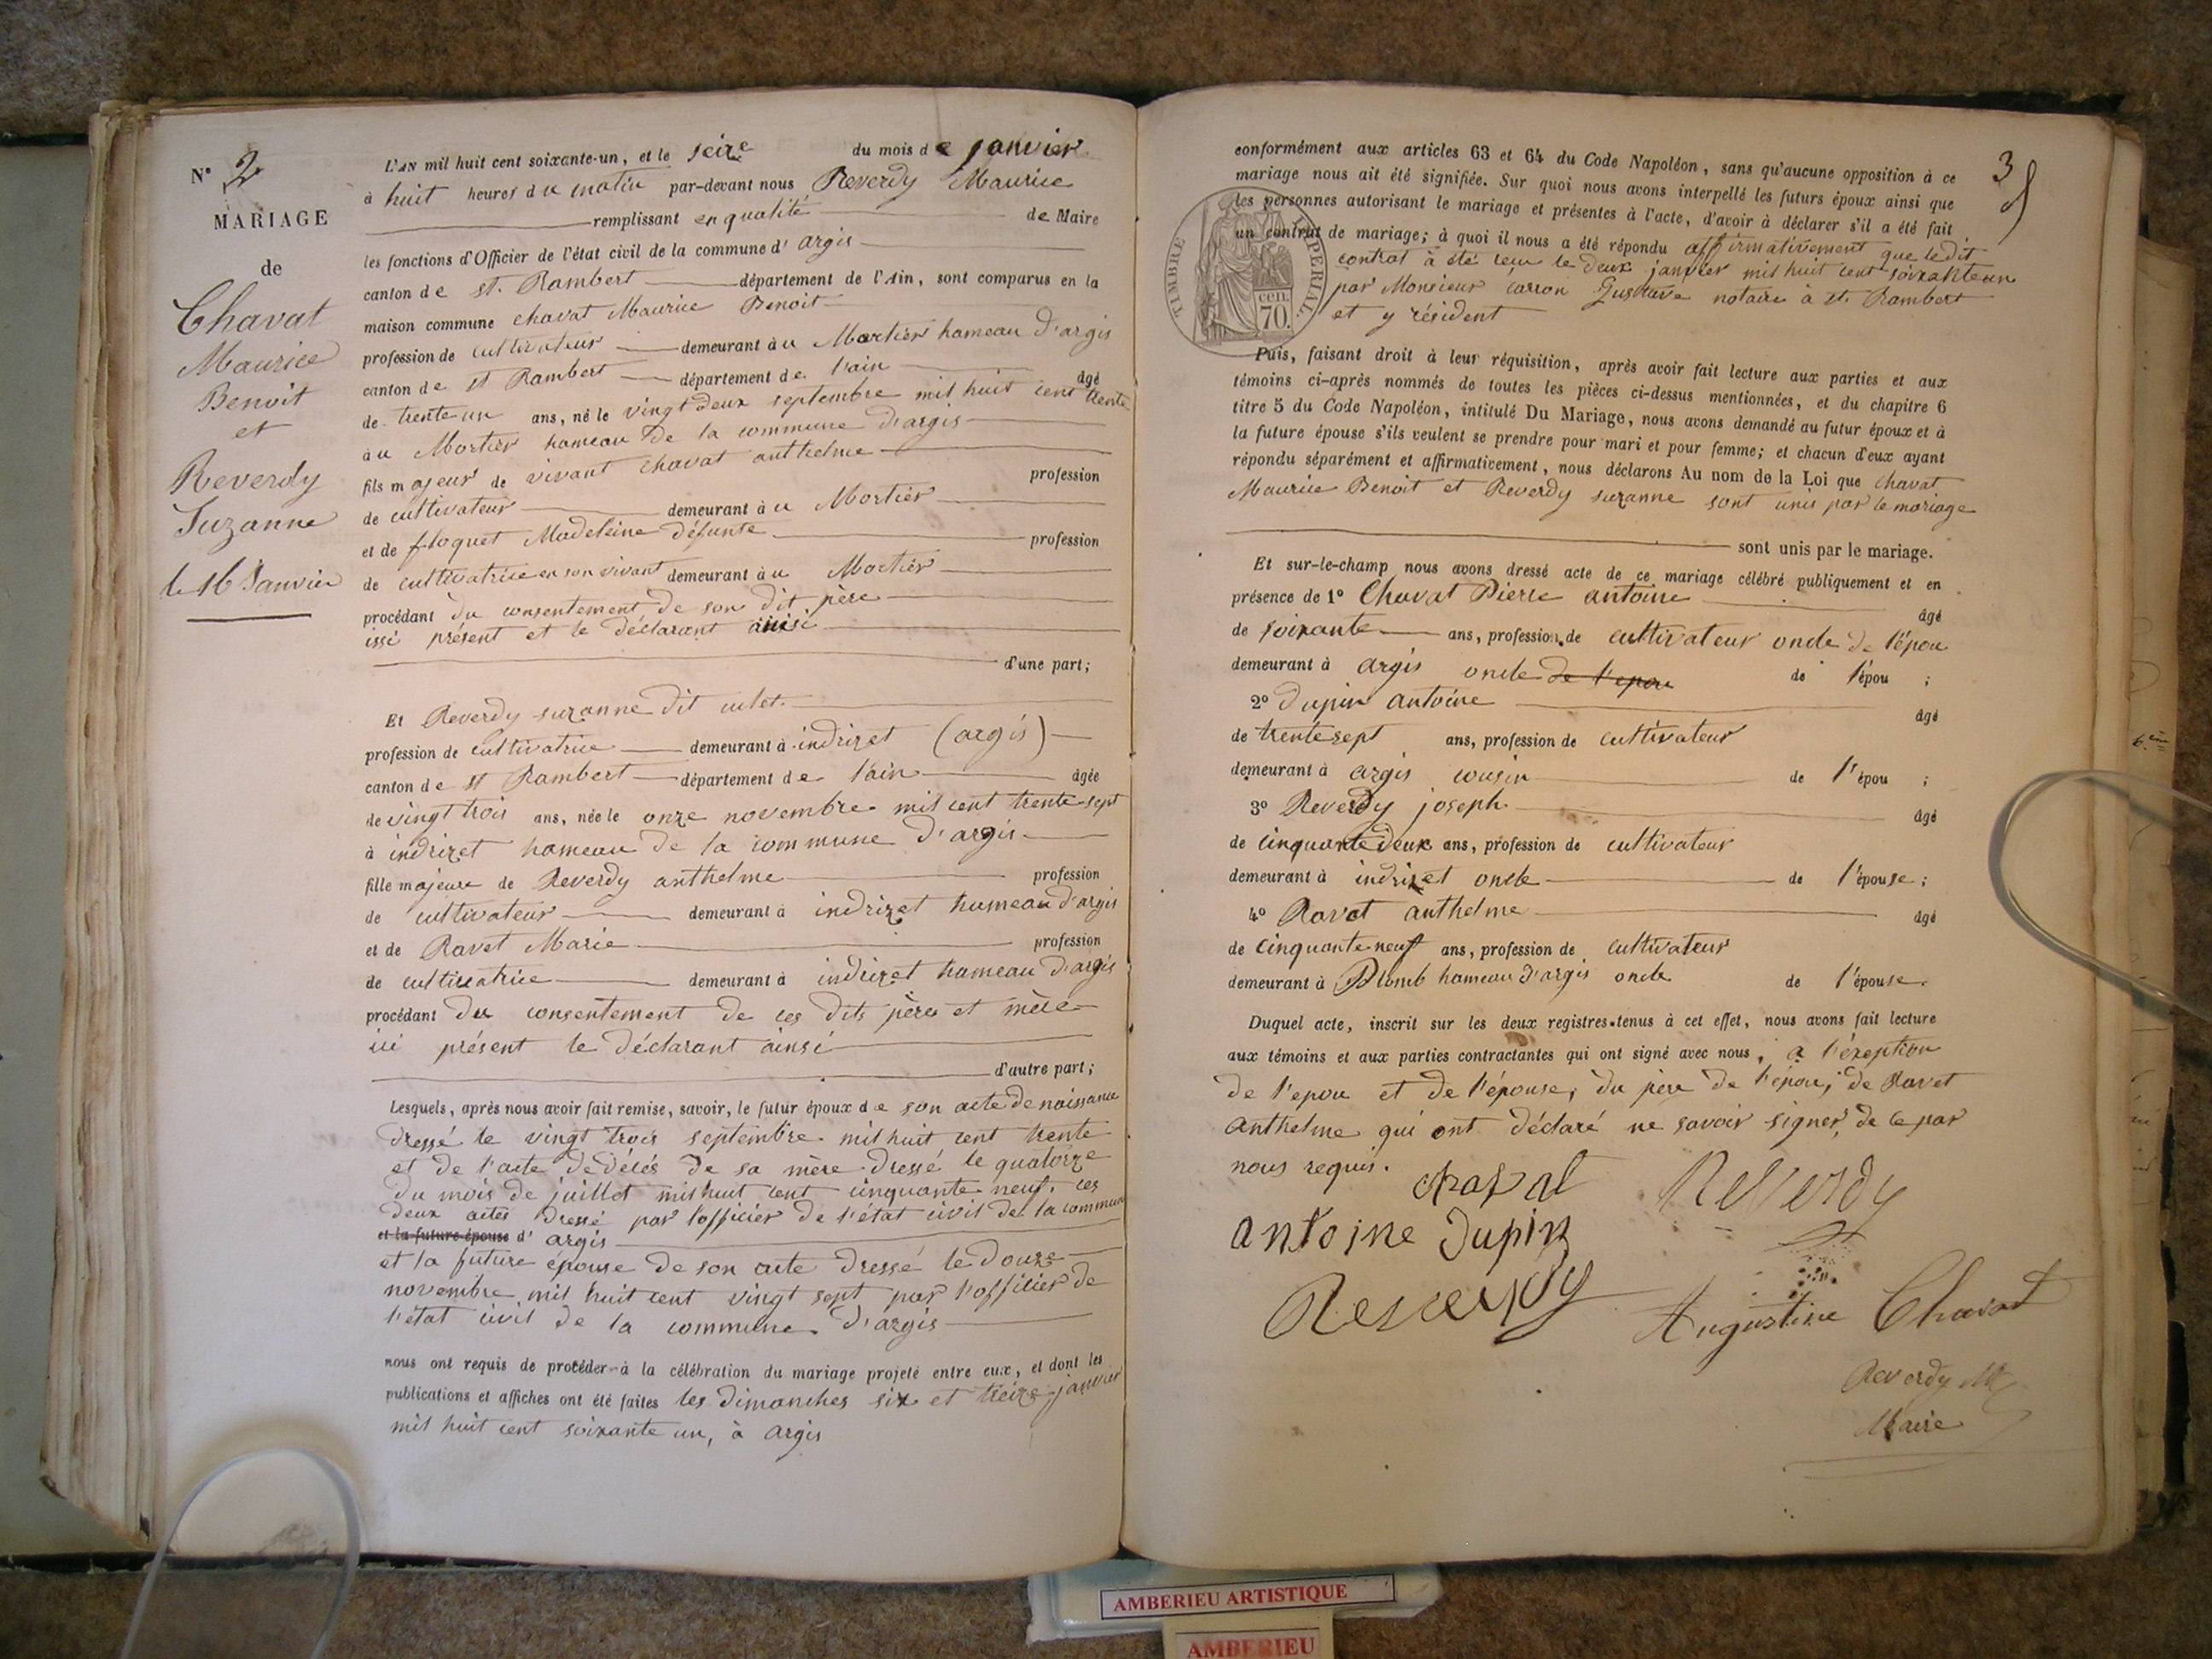 N° 2
MARIAGE
de
Chavat
Maurice
Benoit
et
Reverdy
Suzanne
le 16 Janvier
L'AN mil huit cent soixante-un, et le seize du mois de janvier
à huit heures du matin par-devant nous Reverdy Maurice
remplissant en qualité de Maire
les fonctions d'Officier de l'état civil de la commune d' argis
canton de st. Rambert département de l'Ain, sont comparus en la
maison commune Chavat Maurice Benoit
profession de cultivateur demeurant au Mortier hameau d'argis
canton de st Rambert département de l'ain âgé
de trente un ans, né le vingt deux septembre mil huit cent trente
au Mortier hameau de la commune d'argis
fils majeur de vivant Chavat anthelme profession
de cultivateur demeurant au Mortier
et de floquet Madeleine défunte profession
de cultivatrice en son vivant demeurant au Mortier
procédant du consentement de son dit père
issi présent et le déclarant ainsi
d'une part;
Et Reverdy suzanne dit culet.
profession de cultivatrice demeurant à indrizet (argis)
canton de st Rambert département de l'ain âgée
de vingt trois ans, née le onze novembre mil cent trente sept
à indrizet hameau de la commune d'argis
fille majeure de Reverdy anthelme profession
de cultivateur demeurant à indrizet hameau d'argis
et de Ravet Marie profession
de cultivatrice demeurant à indrizet hameau d'argis
procédant du consentement de ces dits père et mère
ici présent le déclarant ainsi
d'autre part;
Lesquels, après nous avoir fait remise, savoir, le futur époux de son acte de naissance
dressé le vingt trois septembre mil huit cent trente
et de l'acte de décés de sa mère dressé le quatorze
du mois de juillet mil huit cent cinquante neuf. ces
deux actes dressé par l'officier de l'état civil de la commune
et la future épouse d' argis
et la future épouse de son acte dressé le douze
novembre mil huit cent vingt sept par l'officier de
l'état civil de la commune d'argis
nous ont requis de procéder à la célébration du mariage projeté entre eux, et dont les
publications et affiches ont été faites les dimanches six et treize janvier
mil huit cent soixante un, à argis
3
conformément aux articles 63 et 64 du Code Napoléon, sans qu'aucune opposition à ce
mariage nous ait été signifiée. Sur quoi nous avons interpellé les futurs époux ainsi que
les personnes autorisant le mariage et présentes à l'acte, d'avoir à déclarer s'il a été fait
un contrat de mariage; à quoi il nous a été répondu affirmativement que le dit
contrat à été reçu le deux janvier mil huit cent soixante un
par Monsieur carron Gustave notaire à st. Rambert
et y résident
TIMBRE IMPERIAL
cen.
70.
Puis, faisant droit à leur réquisition, après avoir fait lecture aux parties et aux
témoins ci-après nommés de toutes les pièces ci-dessus mentionnées, et du chapitre 6
titre 5 du Code Napoléon, intitulé Du Mariage, nous avons demandé au futur époux et à
la future épouse s'ils veulent se prendre pour mari et pour femme; et chacun d'eux ayant
répondu séparément et affirmativement, nous déclarons Au nom de la Loi que Chavat
Maurice Benoit et Reverdy suzanne sont unis par le mariage
sont unis par le mariage.
Et sur-le-champ nous avons dressé acte de ce mariage célébré publiquement et en
présence de 1° Chavat Pierre antoine âgé
de soixante ans, profession de cultivateur oncle de l'épou
demeurant à argis oncle de l'epou de l'épou ;
2° Dupin Antoine âgé
de trente sept ans, profession de cultivateur
demeurant à argis cousin de l'épou ;
3° Reverdy joseph âgé
de cinquante deux ans, profession de cultivateur
demeurant à indrizet oncle de l'épouse;
4° Ravet anthelme âgé
de cinquante neuf ans, profession de cultivateur
demeurant à Plomb hameau d'argis oncle de l'épouse.
Duquel acte, inscrit sur les deux registres tenus à cet effet, nous avons fait lecture
aux témoins et aux parties contractantes qui ont signé avec nous, a l'éxeption
de l'epou et de l'épouse, du père de l'épou, de Ravet
anthelme qui ont déclaré ne savoir signer, de ce par
nous requis.
Chavat Reverdy
antoine Dupin
Reverdy
Augustine Chavat
Reverdy M
Maire
AMBERIEU ARTISTIQUE
AMBERIEU